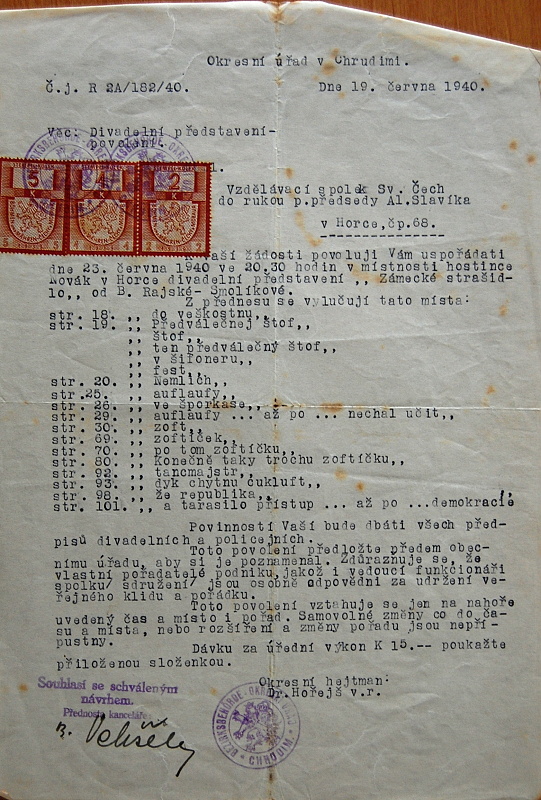 Okresní úřad v Chrudimi.
Č.j. R 2A/182/40. Dne 19. června 1940.
Věc: Divadelní představení-
povolení.
3 K
K
2 K
Vzdělávací spolek Sv. Čech
do rukou p.předsedy Al.Slavíka
v Horce, čp.68.
žádosti povoluji Vám uspořádati
dne 23. června 1940 ve 20.30 hodin v místnosti hostince
Novák v Horce divadelní představení ,, Zámecké strašid-
lo,, od B. Rajské- Smolíkové.
Z přednesu se vylučují tato místa:
str. 18. ,, do veškostnu,,
str. 19. ,, Předválečnej štof,,
,, štof,,
,, ten předválečný štof,,
,, v šifoneru,,
,, fest,,
str. 20. ,, Nemlich,,
str.25. ,, auflaufy,,
str. 26. ,, ve šporkase,,
str. 29. ,, auflaufy ... až po ... nechal učit,,
str. 30. ,, zoft,,
str. 69. ,, zoftíček,,
str. 70. ,, po tom zoftíčku,,
str. 80. ,, Konečně taky trochu zoftíčku,,
str. 92. ,, tancmajstr,,
str. 93. ,, dyk chytnu cukluft,,
str. 98. ,, že republika,,
str. 101. ,, a tarasilo přístup ... až po ...demokracie,,
Povinností Vaší bude dbáti všech před-
pisů divadelních a policejních.
Toto povolení předložte předem obec-
nímu úřadu, aby si je poznamenal. Zdůrazňuje se, že
vlastní pořadatelé podniku,jakož i vedoucí funkcionáři
spolku/ sdružení/ jsou osobně odpovědni za udržení ve-
řejného klidu a pořádku.
Toto povolení vztahuje se jen na nahoře
uvedený čas a místo i pořad. Samovolné změny co do ča-
su a místa, nebo rozšíření a změny pořadu jsou nepří-
pustny.
Dávku za úřední výkon K 15.-- poukažte
přiloženou složenkou.
Okresní hejtman:
Dr.Hořejš v.r.
Souhlasí se schváleným
návrhem.
Přednosta kanceláře
BEZIRKSBEHÖRDE - OKRESNÍ ÚŘAD
CHRUDIM